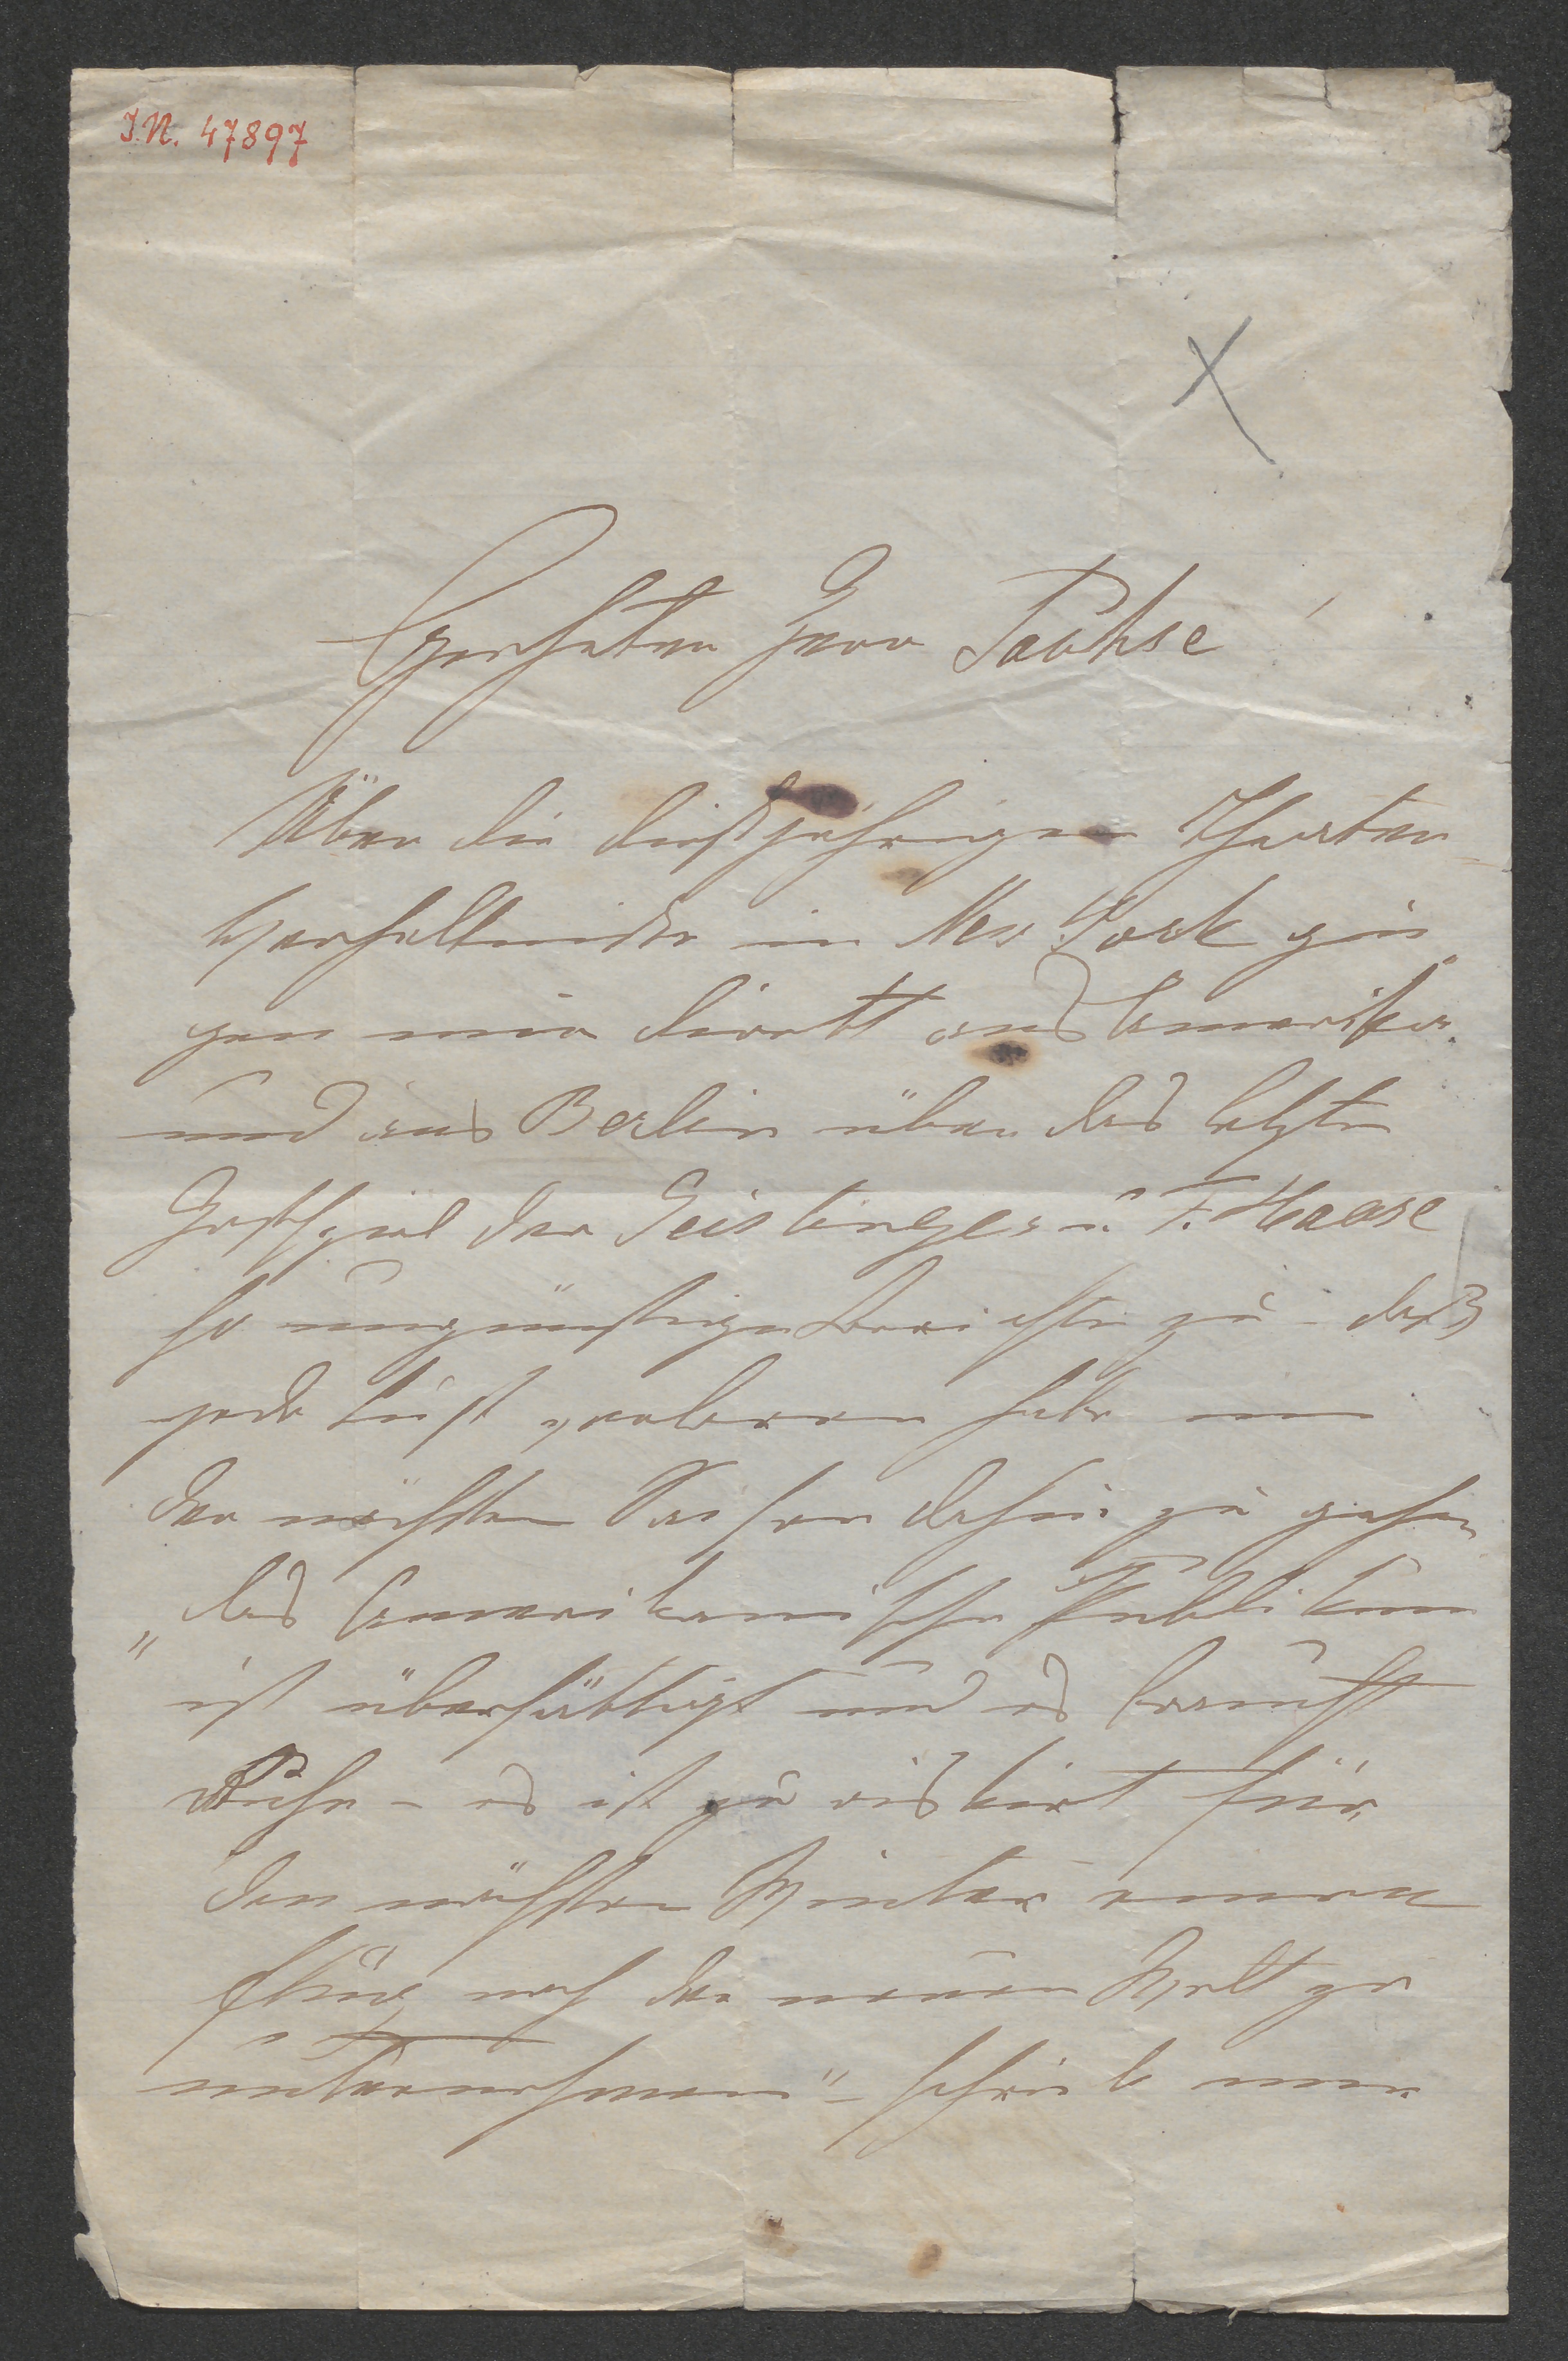 I.N. 47897
Geehrter Herr Sachse
Über die dießjährigen Theater-
Verhältniße in New York gin-
gen mir direkt aus Amerika
und aus Berlin über das letzte
Gastspiel der Geistinger u. F. Haase
so ungünstige Berichte zu – daß
jede Lust verloren habe um
der nächsten Saison dahin zu gehen
„das Amerikanische Publikum
ist übersättigt und es braucht
Ruhe – es ist zu riskirt für
den nächsten Winter einen
Flug nach der neuen Welt zu
unternehmen" – schrieb man